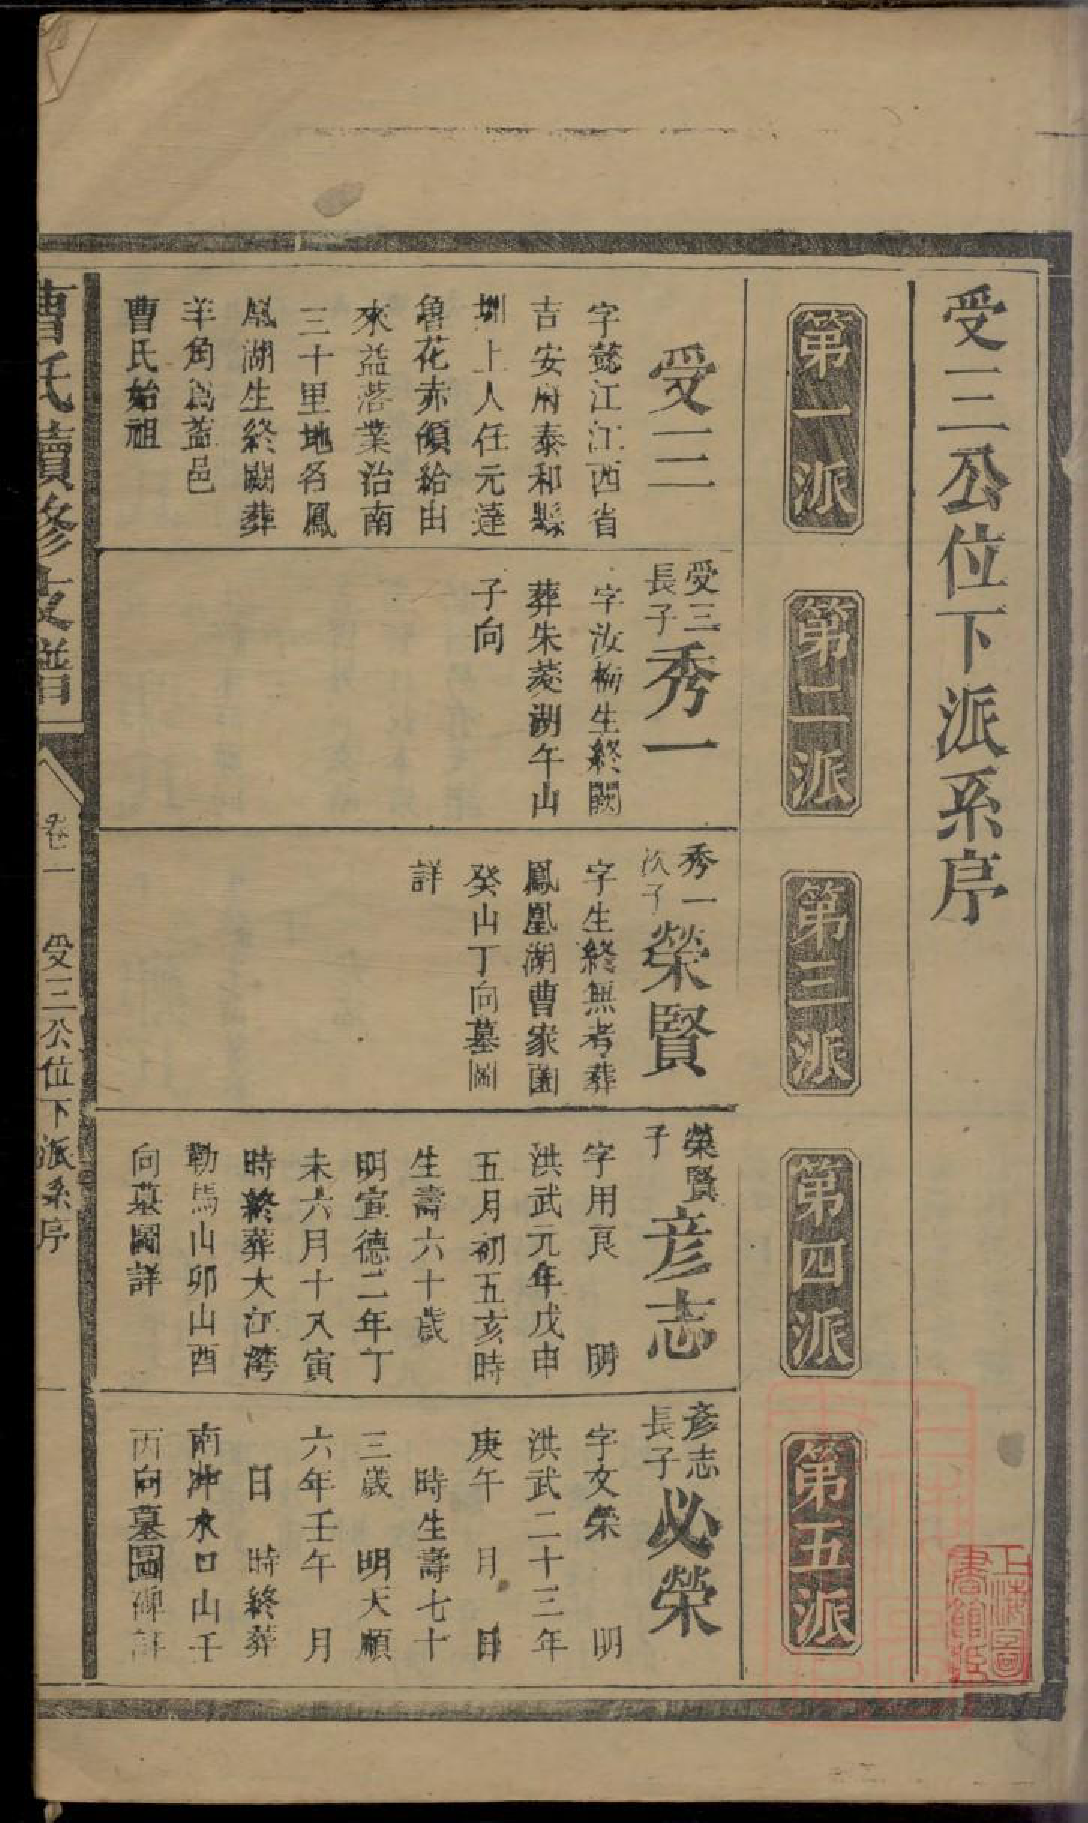 受三公位下派系序
第一派
第二派
第三派
第四派
第五派
受三
字懿江江西省
吉安府泰和縣
圳上人任元達
魯花赤領給由
來益落業治南
三十里地名鳳
凰湖生終闕葬
羊角爲益邑
曹氏始祖
受三
長子
秀一
字汝楠生終闕
葬朱菱湖午山
子向
秀一
次子
榮賢
字生終無考葬
鳳凰湖曹家園
癸山丁向墓圖
詳
榮賢
子
彦志
字用良 明
洪武元年戊申
五月初五亥時
生壽六十歲
明宣德二年丁
未六月十八寅
時終葬大江灣
勒馬山卯山酉
向墓圖詳
彦志
長子
必榮
字文榮 明
洪武二十三年
庚午 月 日
時生壽七十
三歲 明天順
六年壬午 月
日 時終葬
南冲水口山千
西向墓圖碑詳
曹氏續修支譜
卷一
受三公位下派系序
上海圖
書館藏